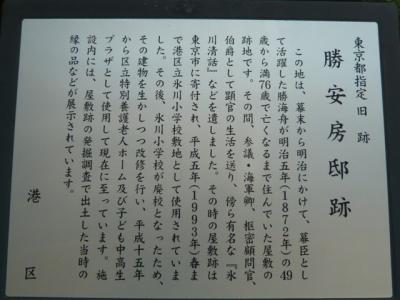 東京都指定 旧跡
勝安房邸跡
この地は、幕末から明治にかけて、幕臣とし
て活躍した勝海舟が明治五年(1872年)の49
歳から満76歳で亡くなるまで住んでいた屋敷の
跡地です。その間、参議・海軍卿、枢密顧問官、
伯爵として顕官の生活を送り、傍ら有名な『氷
川清話』などを遺しました。その時の屋敷跡は
東京市に寄付され、平成五年(1993年)春ま
で港区立氷川小学校敷地として使用されていま
した。その後、氷川小学校が廃校となったため、
その建物を生かしつつ改修を行い、平成十五年
から区立特別養護老人ホーム及び子ども中高生
プラザとして使用して現在に至っています。施
設内には、屋敷跡の発掘調査で出土した当時の
縁の品などが展示されています。
港区